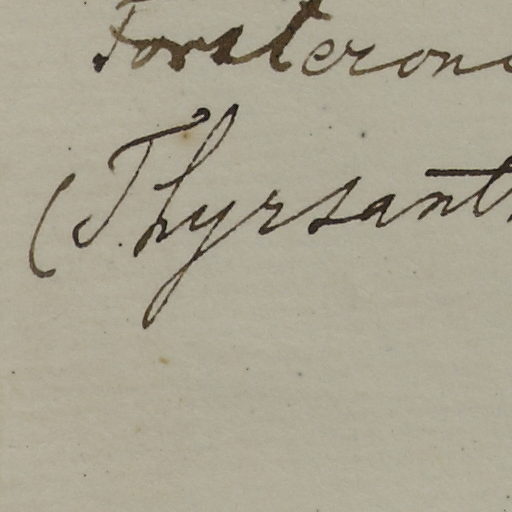 Forsteron
(Thyrsant